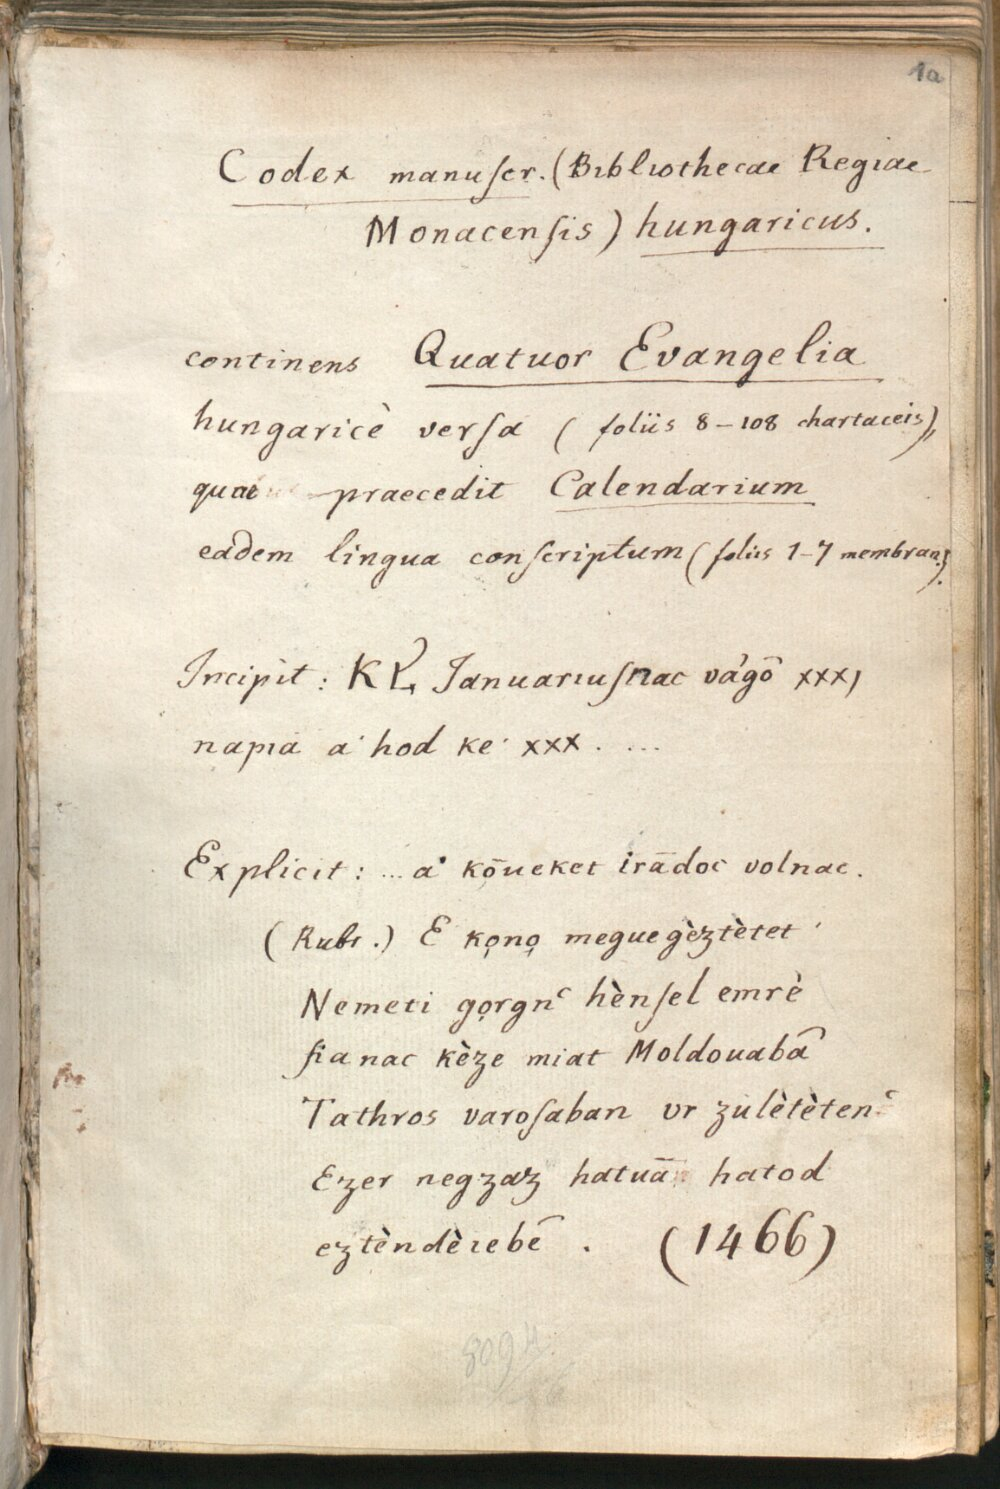 1a
Codex manuſcr. (Bibliothecae Regiae
Monacenſis) hungaricus.
continens Quatuor Evangelia
hungaricè verſa ( foliis 8–108 chartaceis),
quae praecedit Calendarium
eadem lingua conſcriptum ( foliis 1–7 membran.).
Incipit : KL Januariuſnac vágō xxxı
napia a' hod ke· xxx. ...
Explicit : ... a' kȱueket irādoc volnac.
(Rubr.) E kọnọ meguegèztètet
Nemeti gọrgnc hènſel emrè
fianac kèze miat Moldouabā
Tathros varoſaban vr zulètètenc
Ezer negzaz hatuā hatod
eztèndèiebē . (1466)